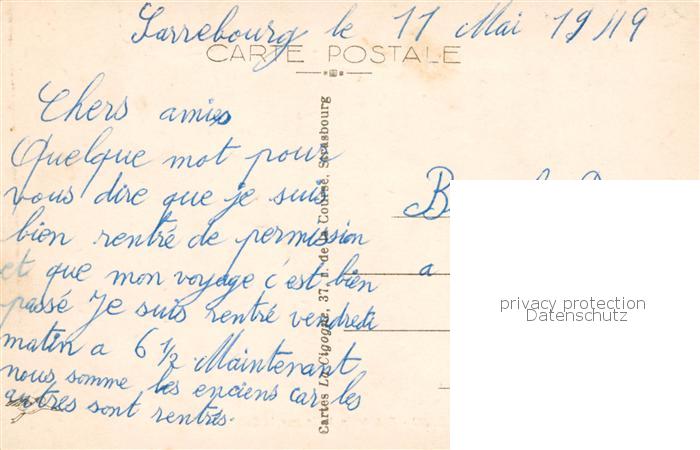 Sarrebourg le 11 Mai 1949
CARTE POSTALE
Chers amis
Quelque mot pour
vous dire que je suis
bien rentré de permission
et que mon voyage c'est bien
passé Je suis rentré vendredi
matin a 6 1/2 Maintenant
nous somme les enciens car les
autres sont rentrés.
Cartes La Cigogne, 37, r. de la Course, Strasbourg
a
privacy protection
Datenschutz